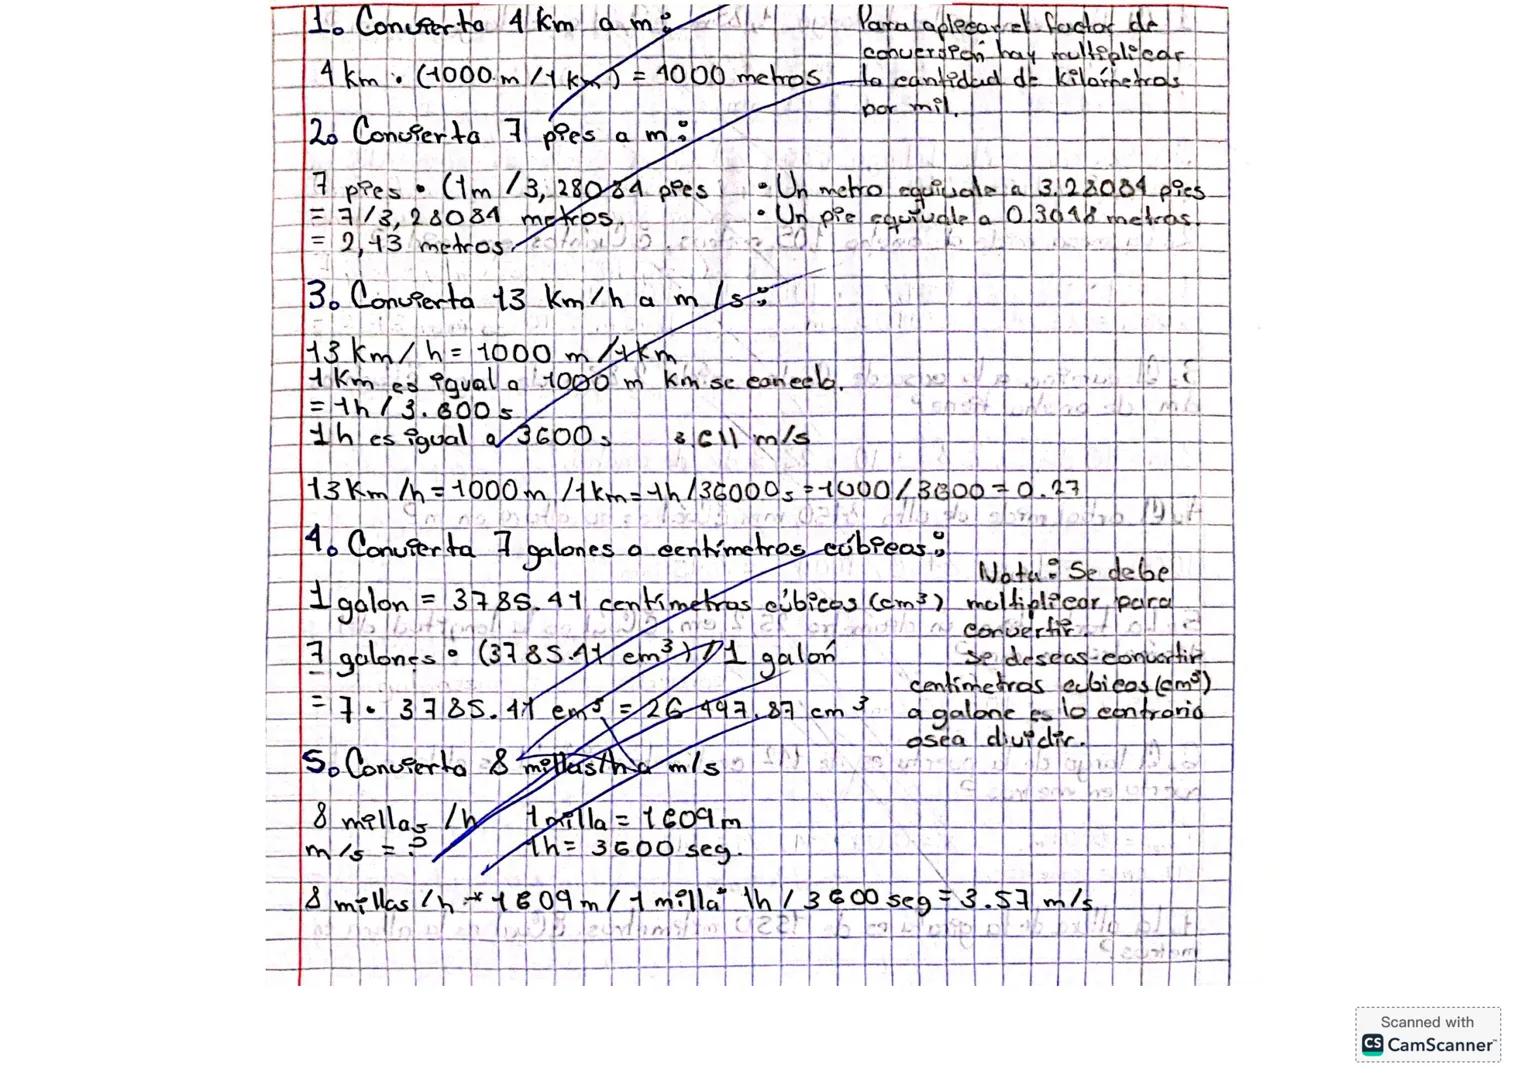 1. Convierta 4 km a m:
Para aplicar el factor de
conversión hay multiplicar
la cantidad de kilómetros
por mil.
4 km • (1000 m / 1 km) = 4000 metros
2. Convierta 7 pies a m:
7 pies • (1m / 3,28084 pies
= 7/3,28084 metros.
= 2,13 metros
• Un metro equivale a 3.28084 pies
• Un pie equivale a 0.3048 metros.
3. Convierta 13 km/h a m/s:
13 km/h = 1000 m / 1km
1 km es igual a 1000 m km se cancela.
= 1h / 3.600 s
1h es igual a 3600 s 3.611 m/s
13 km/h = 1000 m / 1km = 1h/36000s = 1000/3600 = 0.27
4. Convierta 7 galones a centímetros cúbicos:
1 galon = 3785.41 centímetros cúbicos (cm³)
7 galones • (3785.41 cm³) / 1 galón
= 7 • 3785.41 cm³ = 26 497.87 cm³
Nota: Se debe
multiplicar para
convertir.
se deseas convertir
centímetros cubicos (cm³)
a galone es lo contrario
osea dividir.
5. Convierta 8 millas/h a m/s
8 millas /h 1 milla = 1609 m
m/s = ? 1h = 3600 seg.
8 millas /h * 1609 m / 1 milla * 1h / 3600 seg = 3.57 m/s
Scanned with
CS CamScanner